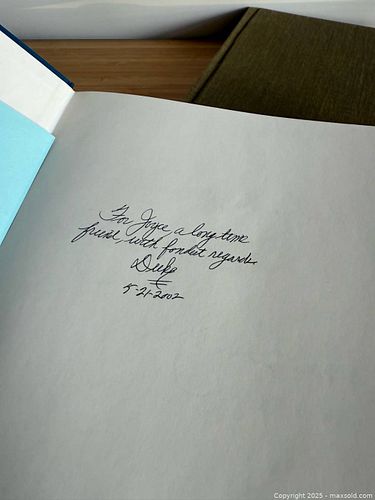 For Joyce, a long time
friend, with fondest regards.
5-21-2002
Copyright 2025 - maxsold.com